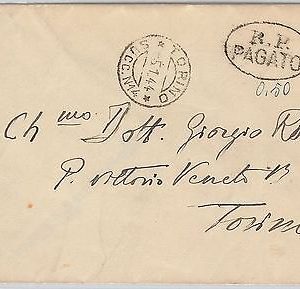 TORINO
5.1.44
* SUCC. N. 14 *
R. P.
PAGATO
0,50
Ch mo Dott. Giorgio
P. Vittorio Veneto
Torino